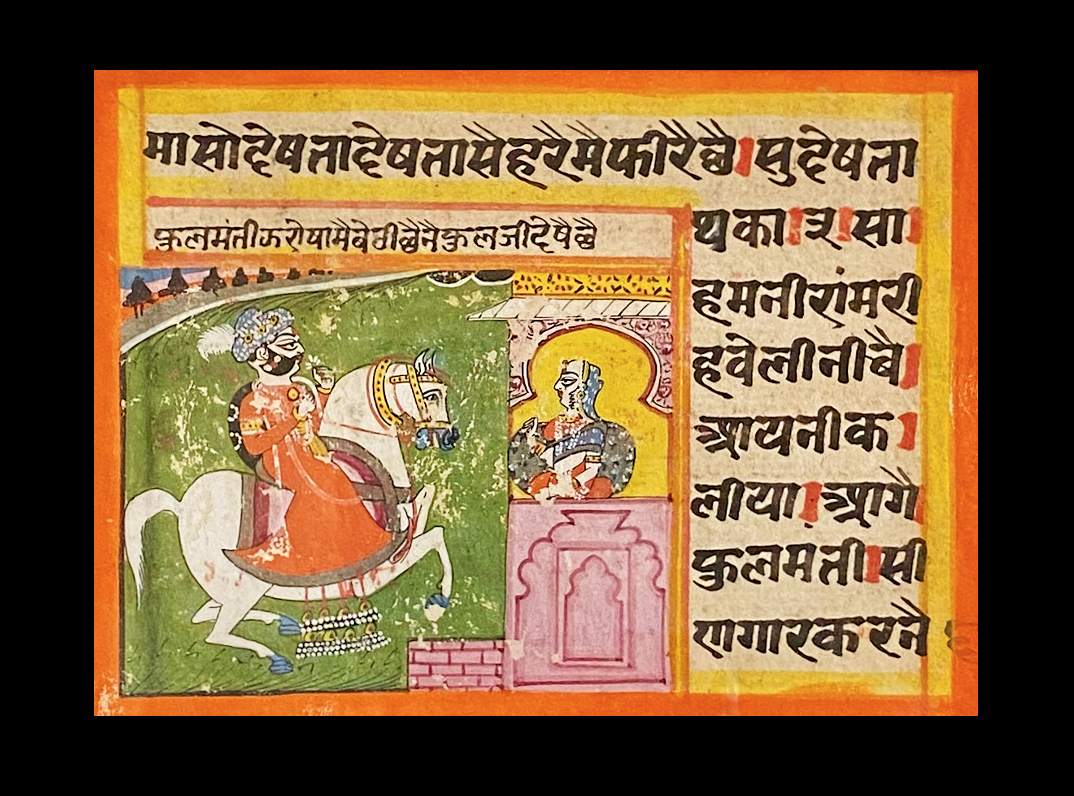 मासोदेषतादेषतासैहरैमैफीरैछै।सुदेषता
फुलमंतीझरोषामैबेठीछैनैफुलजीदेषैछै
थका।३।सा।
हमनीरांमरी
हवेलीनीचै।
आयनीक।
लीया।आगै
फुलमती।सी
णगारकरनै